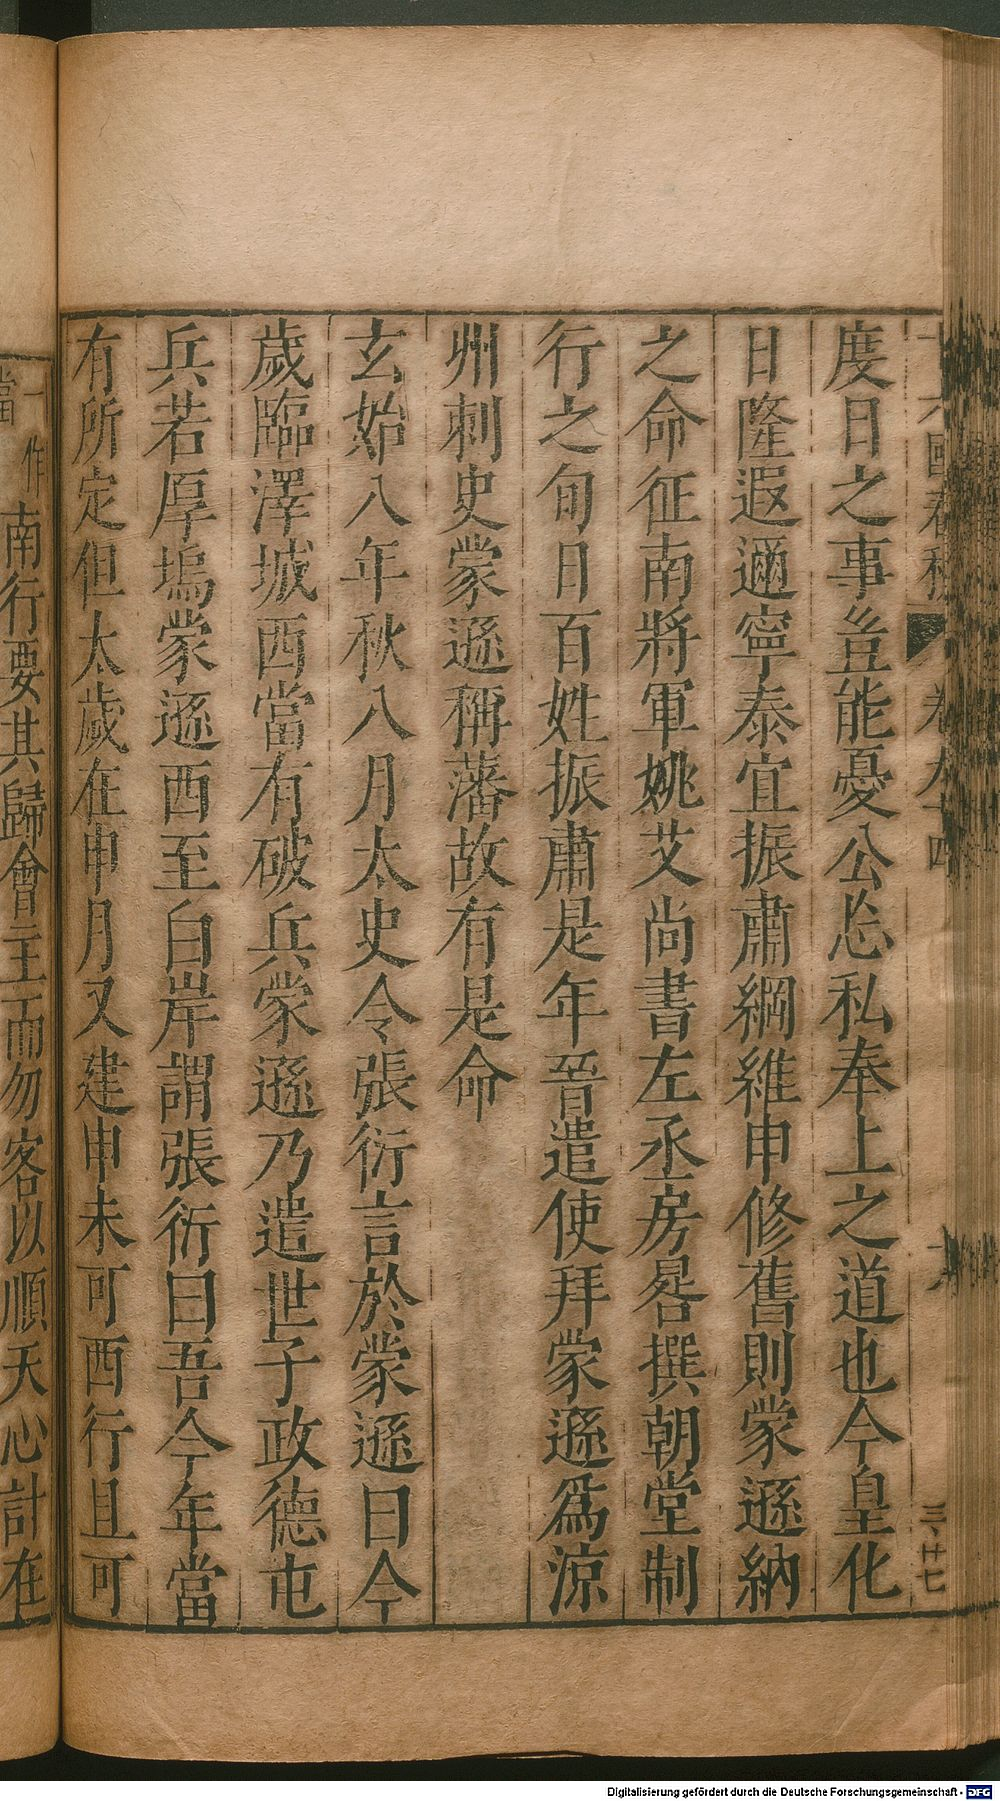 十六國春秋 卷九十四 十八 三 廿七
度日之事豈能憂公忘私奉上之道也今皇化
日隆遐邇寧泰宜振肅綱維申修舊則蒙遜納
之命征南將軍姚艾尚書左丞房晷撰朝堂制
行之旬日百姓振肅是年晉遣使拜蒙遜爲涼
州刺史蒙遜稱藩故有是命
玄始八年秋八月太史令張衍言於蒙遜曰今
歲臨澤城西當有破兵蒙遜乃遣世子政德屯
兵若厚塢蒙遜西至白岸謂張衍曰吾今年當
有所定但太歲在申月又建申未可西行且可
一作
當
南行要其歸會主而勿客以順天心計在
Digitalisierung gefördert durch die Deutsche Forschungsgemeinschaft - DFG